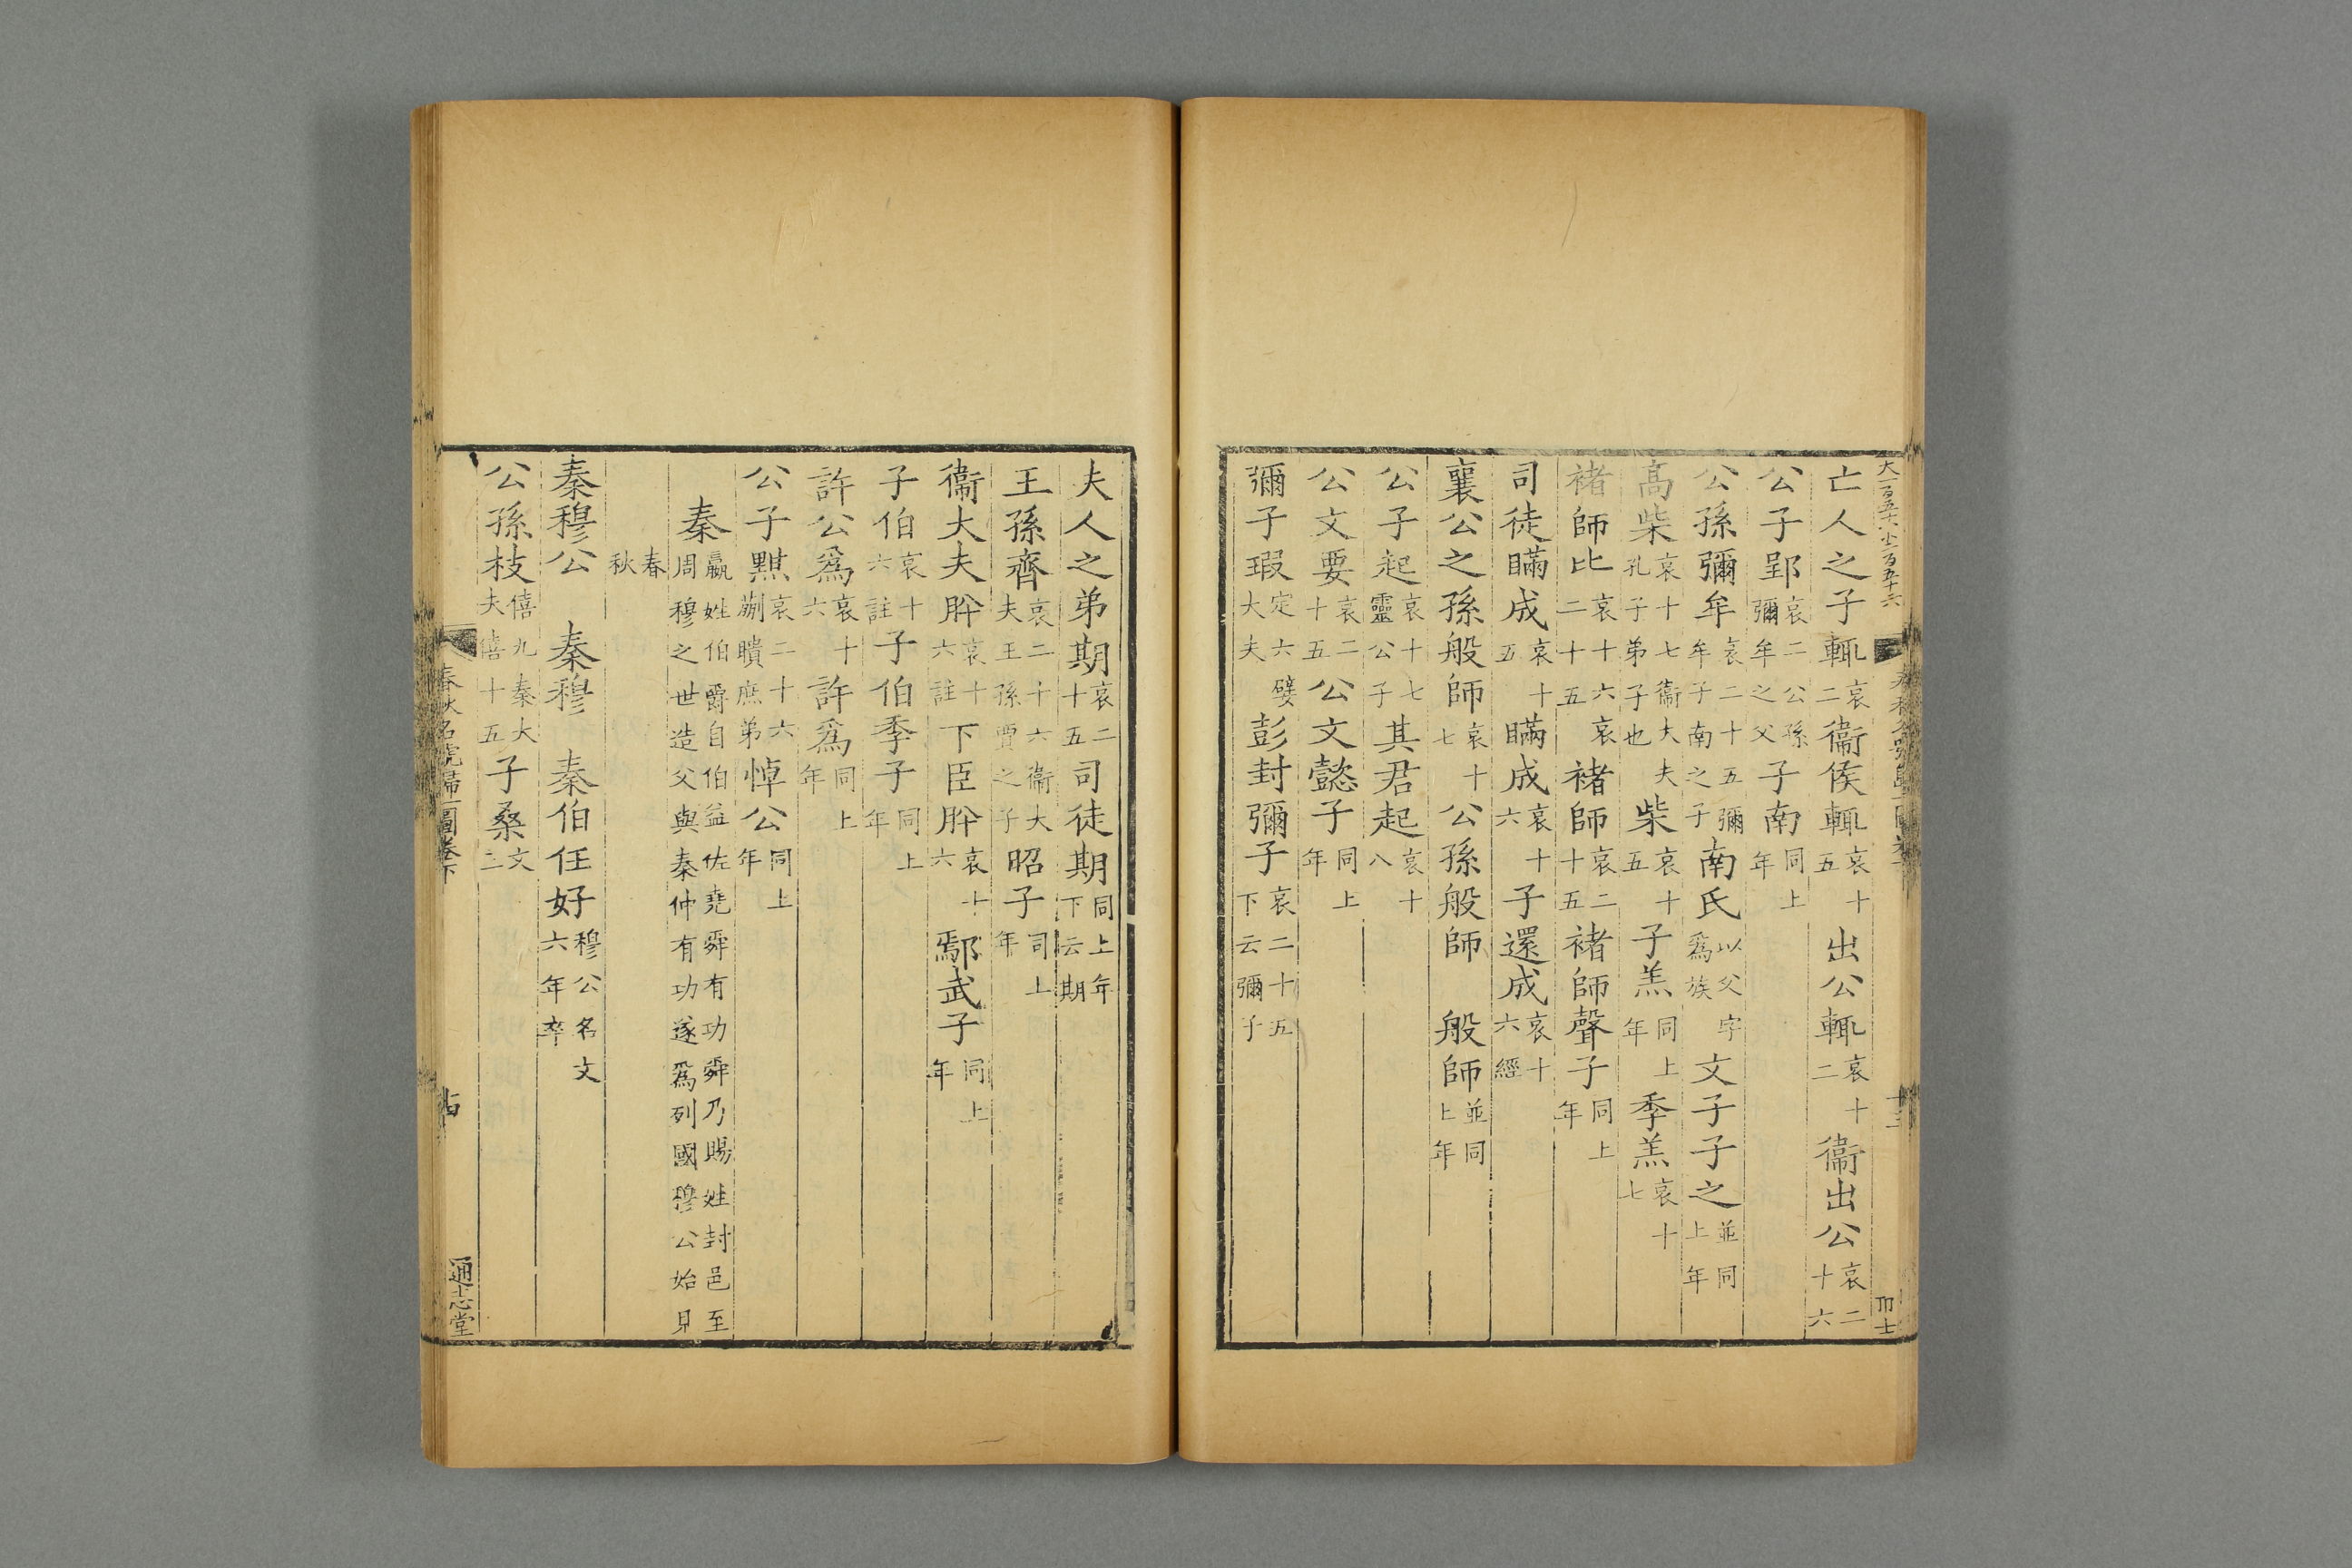 亡人之子輒哀二衞侯輒哀十五出公輒哀十二衞出公哀二十六
公子郢哀二公孫彌牟之父子南同上年
公孫彌牟哀二十五彌牟子南之子南氏以父字爲族文子子之並同上年
高柴哀十七衞大夫孔子弟子也柴哀十五子羔同上年季羔哀十七
褚師比哀十六哀二十五褚師哀二十五褚師聲子同上年
司徒瞞成哀十五瞞成哀十六子還成哀十六經
襄公之孫般師哀十七公孫般師 般師並同上年
公子起哀十七靈公子其君起哀十八
公文要哀二十五公文懿子同上年
彌子瑕定六嬖大夫彭封彌子哀二十五下云彌子
夫人之弟期哀二十五司徒期同上年下云期
王孫齊哀二十六衞大夫王孫賈之子昭子同上年
衞大夫肸哀十六註下臣肸哀十六鄢武子同上年
子伯哀十六註子伯季子同上年
許公爲哀十六許爲同上年
公子黚哀二十六蒯聵庶弟悼公同上年
秦嬴姓伯爵自伯益佐堯舜有功舜乃賜姓封邑至周穆之世造父與秦仲有功遂爲列國穆公始見
春秋
秦穆公 秦穆 秦伯任好穆公名文六年卒
公孫枝僖九秦大夫僖十五子桑文二
春秋名號歸一圖卷下
通志堂